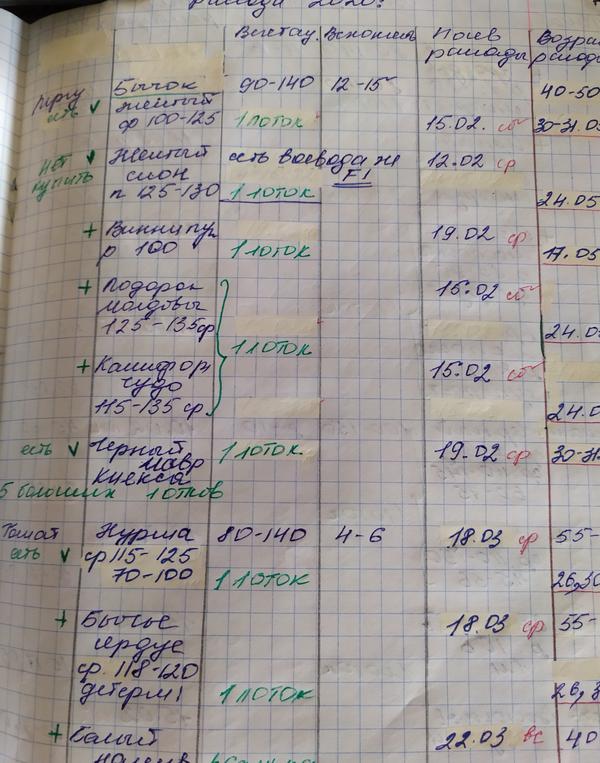 рассада 2020г
Вегетац. Всхожесть Посев рассады Возра рассад
Бычок 90-140 12-15 40-50
есть v желтый
ф 100-125 1 лоток 15.02. сб 30-31.0
нет v Желтый есть воевода ж 12.02 ср
купить слон F1
п 125-130 1 лоток 24.05
+ Виннипух 19.02 ср
р 100 1 лоток 17.05
+ Подарок 15.02 сб
молдовы
125-135 ср 24.0
1 лоток
+ Калифор 15.02 сб
чудо
115-135 ср. 24.0
есть v Черный 1 лоток. 19.02 ср 30-31
мавр
киекса
5 больших лотков
Томат Хурма 80-140 4-6 18.03 ср 55-
есть v ср 115-125
70-100 1 лоток 26,30
+ Бычье 18.03 ср 55-
сердце
ср. 118-120
детерм! 1 лоток 26,3
+ 22.03 вс 40
налив